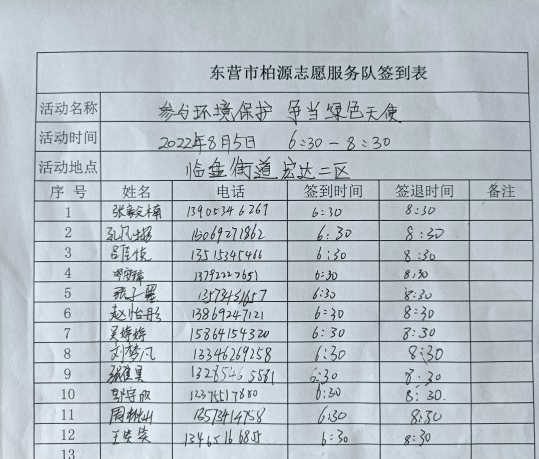 东营市柏源志愿服务队签到表
活动名称 参与环境保护 争当绿色天使
活动时间 2022年8月5日 6:30-8:30
活动地点 临盘街道宏达二区
序号 姓名 电话 签到时间 签退时间 备注
1 13905346267 6:30 8:30
2 15069271862 6:30 8:30
3 13515345466 6:30 8:30
4 13792227651 6:30 8:30
5 13573451657 6:30 8:30
6 赵怡彤 13869247121 6:30 8:30
7 吴婷婷 15864154320 6:30 8:30
8 刘梦凡 13346269258 6:30 8:30
9 6:30 8:30
10 6:30 8:30
11 13573414758 6:30 8:30
12 13465166855 6:30 8:30
13